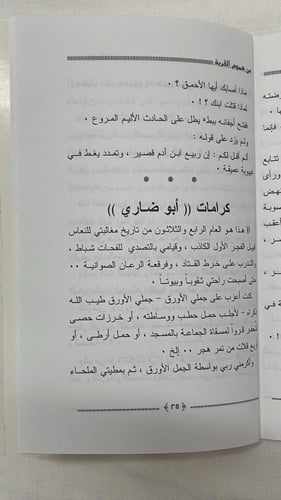 من هموم القرية
ماذا أصابك أيها الأحمق ؟ .
لماذا قتلت ابنك ؟ ! .
ففتح أجفانه ببطء يطل على الحادث الأليم المروع .
ولم يزد على قوله :
ألم أقل لكم : إن ربيع ابن آدم قصير ، وتمدد يغط في
غيبوبة عميقة .
* * *
كرامات (( أبو ضاري ))
(( هذا هو العام الرابع والثلاثون من تاريخ مغالبتي للنعاس
قبل الفجر الأول الكاذب ، وقيامي بالتصدي للفحات شباط ،
والتدرب على خرط القتاد ، وفرقعة الرعان الصوانية . .
حتى أصبحت راحتي ثقوباً وبيوتاً .
كنت أعزب على جملي الأورق - جملي الأورق طيب الله
ذكراه - لأجلب حمل حطب ووساطته ، أو خرزات حصى
لأحفر فرواً لمسقاة الجماعة بالمسجد ، أو حمل أرطى ، أو
أربع قلات من تمر هجر . . إلخ .
وأكرمني ربي بواسطة الجمل الأورق ، ثم بمطيتي الملحاء
﴿ ٣٥ ﴾
رضته
فإنما
تتابع
ورأى
نهض
صوبة